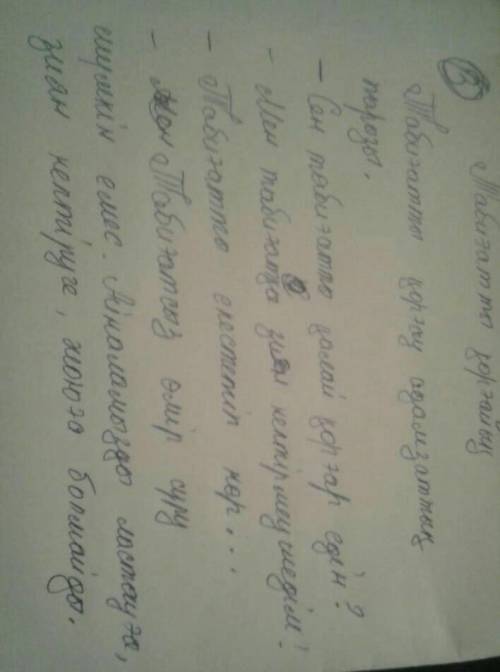 ③ Табиғатты қорғайық
Табиғатты қорғау адамзаттың
парозы.
– Сен табиғатты қалай қорғар едің?
– Мен табиғатқа зиян келтірмеуші едім!
– Табиғатты елестетіп көр...
– Табиғатсыз өмір сүру
мүмкін емес. Айналамызды ластауға,
зиян келтіруге, жоюға болмайды.